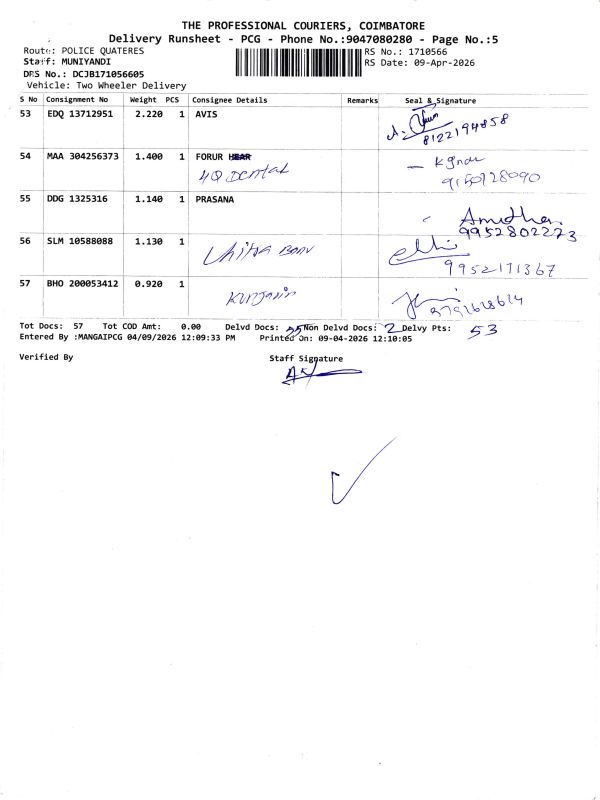 THE PROFESSIONAL COURIERS, COIMBATORE
Delivery Runsheet - PCG - Phone No.:9047080280 - Page No.:5
Route: POLICE QUATERES
RS No.: 1710566
Staff: MUNIYANDI
RS Date: 09-Apr-2026
DRS No.: DCJB171056605
Vehicle: Two Wheeler Delivery
S No Consignment No Weight PCS Consignee Details Remarks Seal & Signature
53 EDQ 13712951 2.220 1 AVIS
8122194858
54 MAA 304256373 1.400 1 FORUR
4Q Dental
9150128090
55 DDG 1325316 1.140 1 PRASANA
Amudhan
9952802273
56 SLM 10588088 1.130 1
9952171367
57 BHO 200053412 0.920 1
Tot Docs: 57 Tot COD Amt: 0.00 Delvd Docs: 55 Non Delvd Docs: 2 Delvy Pts: 53
Entered By :MANGAIPCG 04/09/2026 12:09:33 PM Printed On: 09-04-2026 12:10:05
Verified By Staff Signature